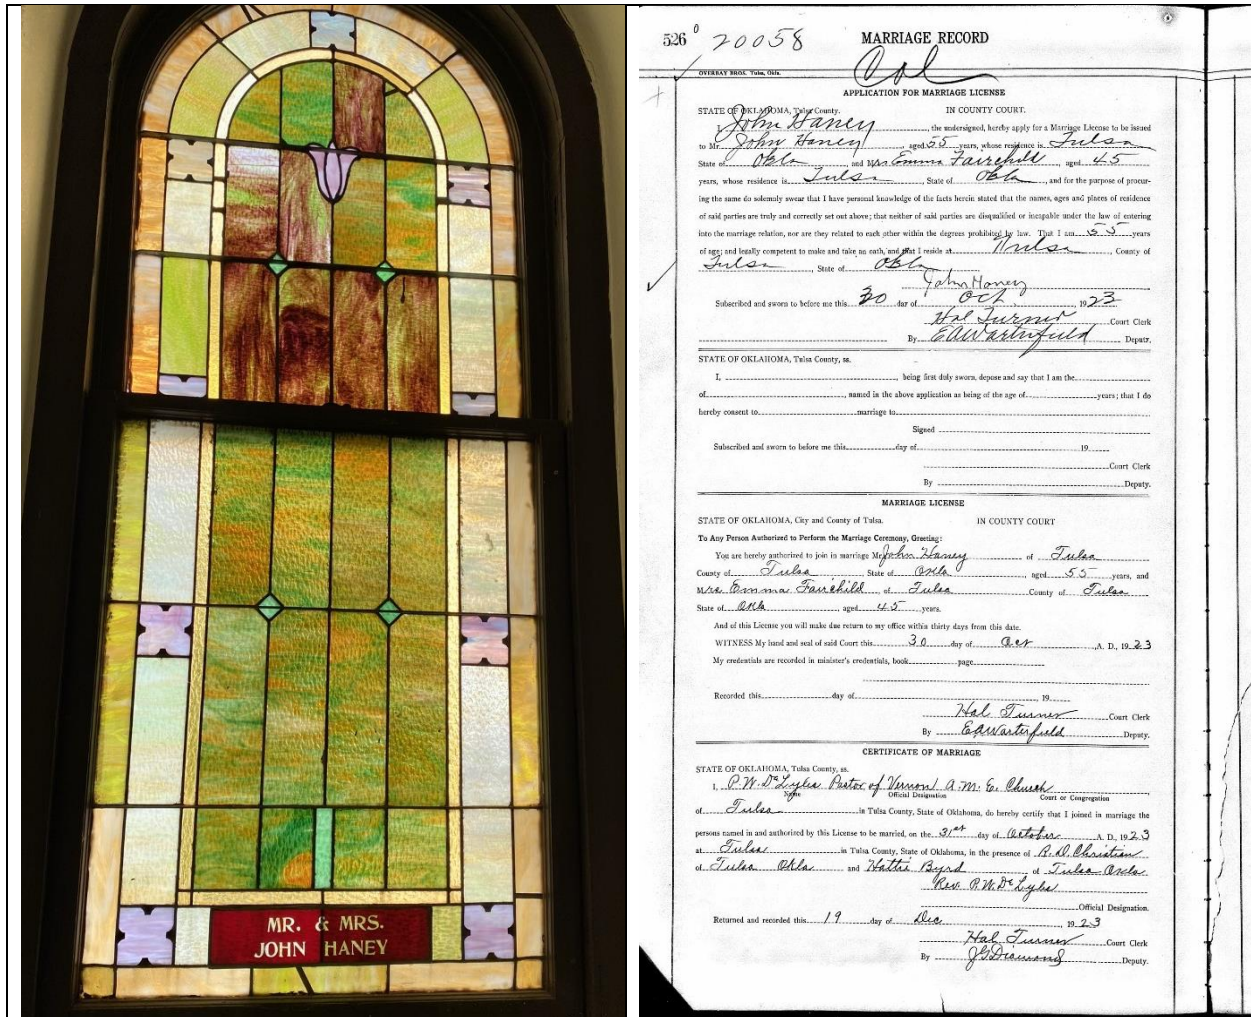 MR. & MRS.
JOHN HANEY
526 20058 MARRIAGE RECORD
Col
OVERBAY BROS. Tulsa, Okla.
APPLICATION FOR MARRIAGE LICENSE
STATE OF OKLAHOMA, Tulsa County. IN COUNTY COURT.
I, John Haney, the undersigned, hereby apply for a Marriage License to be issued
to Mr. John Haney, aged 55 years, whose residence is Tulsa
State of Okla, and Mrs Emma Fairchild aged 45
years, whose residence is Tulsa, State of Okla, and for the purpose of procur-
ing the same do solemnly swear that I have personal knowledge of the facts herein stated that the names, ages and places of residence
of said parties are truly and correctly set out above; that neither of said parties are disqualified or incapable under the law of entering
into the marriage relation, nor are they related to each other within the degrees prohibited by law. That I am 55 years
of age; and legally competent to make and take an oath, and that I reside at Tulsa, County of
Tulsa, State of Okla
John Haney
Subscribed and sworn to before me this 30 day of Oct. 1923
Hal Turner Court Clerk
By EAWarterfield Deputy.
STATE OF OKLAHOMA, Tulsa County, ss.
I, , being first duly sworn, depose and say that I am the
of , named in the above application as being of the age of years; that I do
hereby consent to marriage to
Signed
Subscribed and sworn to before me this day of 19
Court Clerk
By Deputy.
MARRIAGE LICENSE
STATE OF OKLAHOMA, City and County of Tulsa. IN COUNTY COURT
To Any Person Authorized to Perform the Marriage Ceremony, Greeting:
You are hereby authorized to join in marriage Mr John Haney of Tulsa
County of Tulsa State of Okla, aged 55 years, and
Mrs. Emma Fairchild of Tulsa County of Tulsa
State of Okla, aged 45 years.
And of this License you will make due return to my office within thirty days from this date.
WITNESS My hand and seal of said Court this 30 day of Oct, A. D., 1923
My credentials are recorded in minister's credentials, book page
Recorded this day of , 19
Hal Turner Court Clerk
By EAWarterfield Deputy.
CERTIFICATE OF MARRIAGE
STATE OF OKLAHOMA, Tulsa County, ss.
I, P.W. DeLyles Pastor of Vernon A.M.E. Church
Name Official Designation Court or Congregation
of Tulsa in Tulsa County, State of Oklahoma, do hereby certify that I joined in marriage the
persons named in and authorized by this License to be married, on the 31st day of October A. D., 1923
at Tulsa in Tulsa County, State of Oklahoma, in the presence of R.D. Christian
of Tulsa Okla and Hattie Byrd of Tulsa Okla
Rev. P.W. DeLyles
Official Designation.
Returned and recorded this 19 day of Dec 1923
Hal Turner Court Clerk
By JG Diamond Deputy.